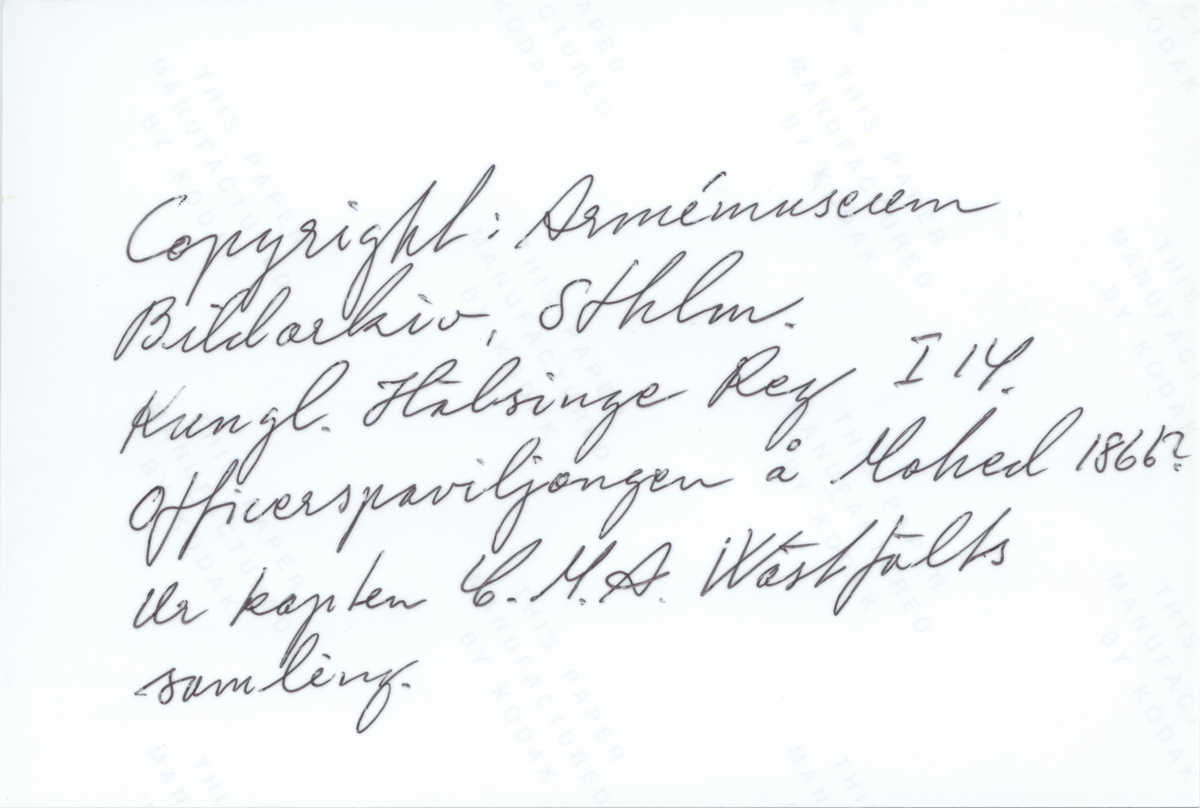 Copyright: Armémuseum
Bildarkiv, Sthlm.
Kungl. Hälsinge Reg I 14.
Officerspaviljongen å Mohed 1866?
Ur kapten C.M.A. Wästfälts
samling.
THIS PAPER
MANUFACTURED
BY KODAK